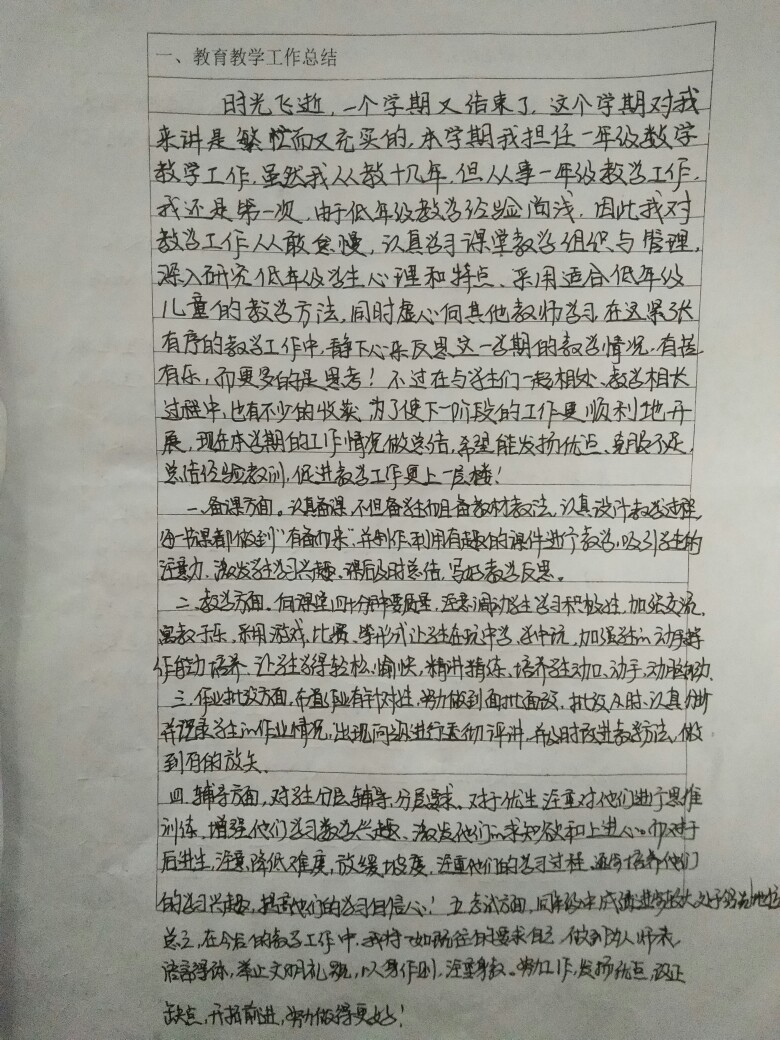 一、教育教学工作总结
时光飞逝，一个学期又结束了，这个学期对我
来讲是繁忙而又充实的，本学期我担任一年级数学
教学工作，虽然我从教十几年，但从事一年级教学工作，
我还是第一次，由于低年级教学经验尚浅，因此我对
教学工作从不敢怠慢，认真学习课堂教学组织与管理，
深入研究低年级学生心理和特点、采用适合低年级
儿童的教学方法，同时虚心向其他教师学习，在这紧张
有序的教学工作中，静下心来反思这一学期的教学情况，有苦
有乐，而更多的是思考！不过在与学生们一起相处、教学相长
过程中，也有不少的收获，为了使下一阶段的工作更顺利地开
展，现在本学期的工作情况做总结，希望能发扬优点、克服不足，
总结经验教训，促进教学工作更上一层楼！
一、备课方面。认真备课，不但备学生而且备教材教法，认真设计教学过程，
每一节课都做到“有备而来”，并制作利用有趣的课件进行教学，吸引学生的
注意力，激发学生学习兴趣，课后及时总结，写好教学反思。
二、教学方面。向课堂四十分钟要质量，注意调动学生学习积极性，加强交流，
寓教于乐，采用游戏、比赛、等形式让学生在玩中学，学中玩，加强学生的动手操
作能力培养，让学生学得轻松，愉快，精讲精练，培养学生动口、动手、动脑能力。
三、作业批改方面，布置作业有针对性，努力做到面批面改，批改及时、认真分析
并记录学生的作业情况，出现问题进行透彻评讲，并及时改进教学方法，做
到有的放矢。
四、辅导方面，对学生分层辅导，分层要求、对于优生注重对他们进行思维
训练，增强他们学习数学兴趣，激发他们的求知欲和上进心。而对于
后进生，注意降低难度，放缓坡度，注重他们的学习过程，逐步培养他们
的学习兴趣，提高他们的学习自信心！五、考试方面，同年级中成绩进步较大，处于领先地位
总之，在今后的教学工作中，我将一如既往的要求自己，做到为人师表，
语言得体，举止文明礼貌，以身作则，注重身教。努力工作，发扬优点，改正
缺点，开拓前进，努力做得更好！